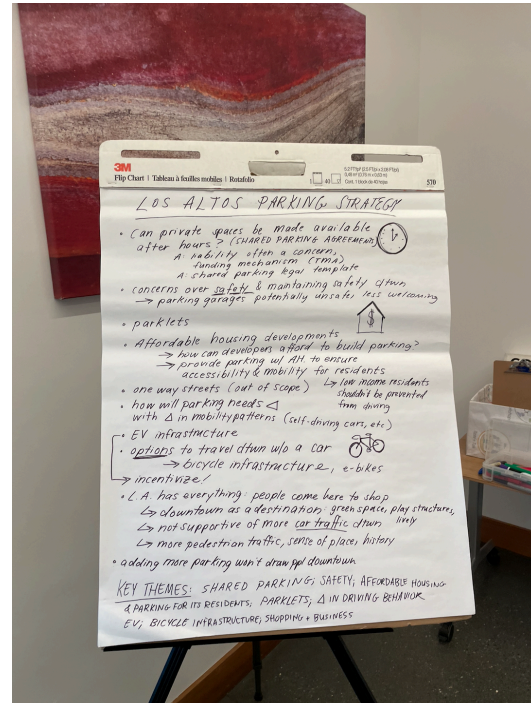 3M
Flip Chart | Tableau à feuilles mobiles | Rotafolio
570
LOS ALTOS PARKING STRATEGY
• Can private spaces be made available
after hours? (SHARED PARKING AGREEMENT)
A: liability often a concern,
funding mechanism (TMA)
A: shared parking legal template
• concerns over safety & maintaining safety dtwn
→ parking garages potentially unsafe, less welcoming
$
• parklets
• Affordable housing developments
→ how can developers afford to build parking?
→ provide parking w/ AH. to ensure
accessibility & mobility for residents
• one way streets (out of scope)
↳ low income residents
shouldn't be prevented
from driving
• how will parking needs Δ
with Δ in mobility patterns (self-driving cars, etc)
• EV infrastructure
• options to travel dtwn w/o a car
→ bicycle infrastructure, e-bikes
→ incentivize!
• L.A. has everything: people come here to shop
↳ downtown as a destination: green space, play structures,
lively
↳ not supportive of more car traffic dtwn
↳ more pedestrian traffic, sense of place, history
• adding more parking won't draw ppl downtown
KEY THEMES: SHARED PARKING; SAFETY; AFFORDABLE HOUSING
& PARKING FOR ITS RESIDENTS; PARKLETS; Δ IN DRIVING BEHAVIOR
EV; BICYCLE INFRASTRUCTURE; SHOPPING + BUSINESS